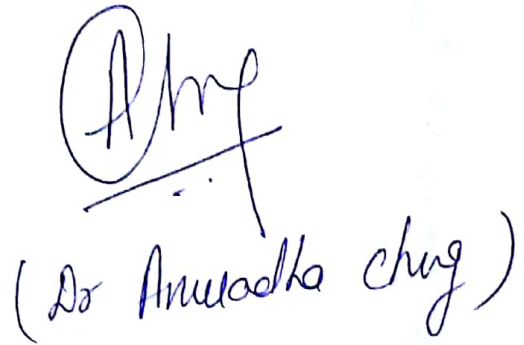 (Dr Anuradha Chug)